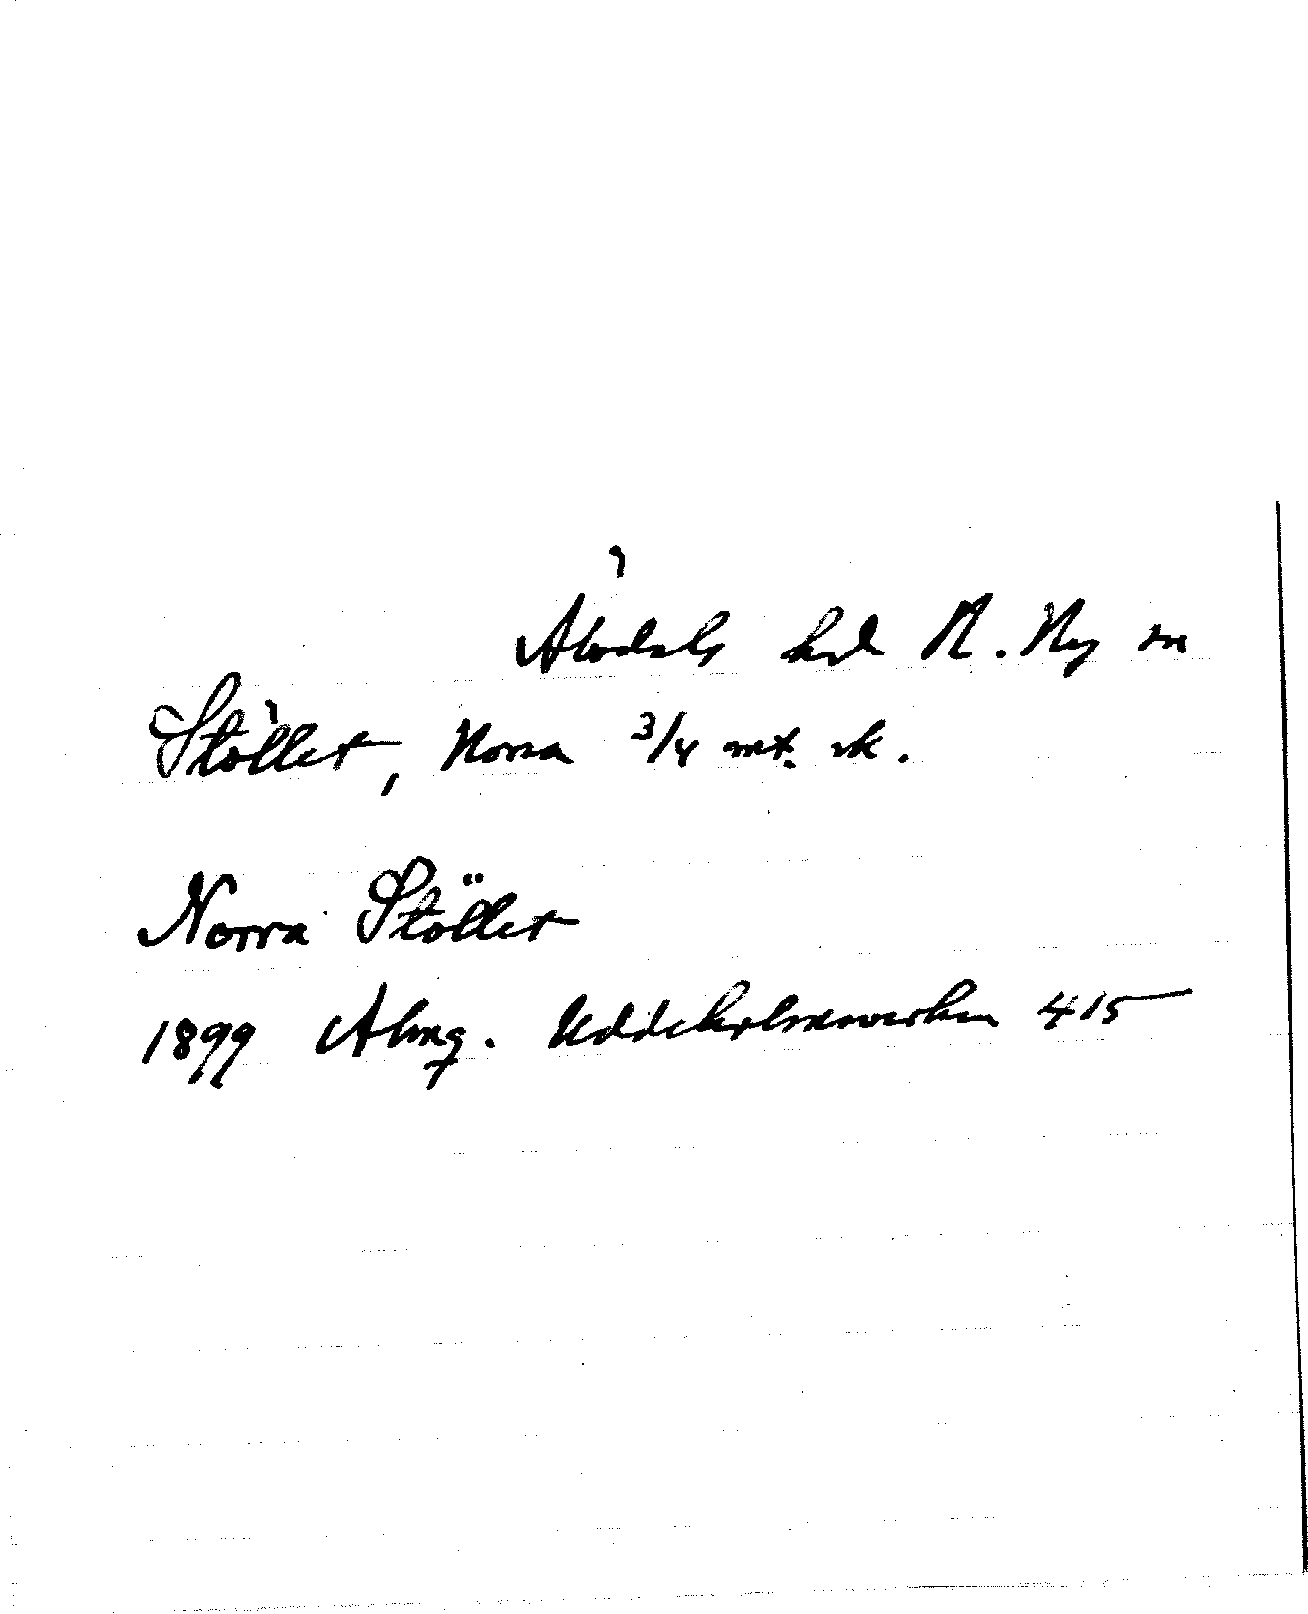 Älvdals hd N. Ny sn
Stöllet, Norra 3/4 mt. sk.
Norra Stöllet
1899 Almq. Uddeholmsverken 415